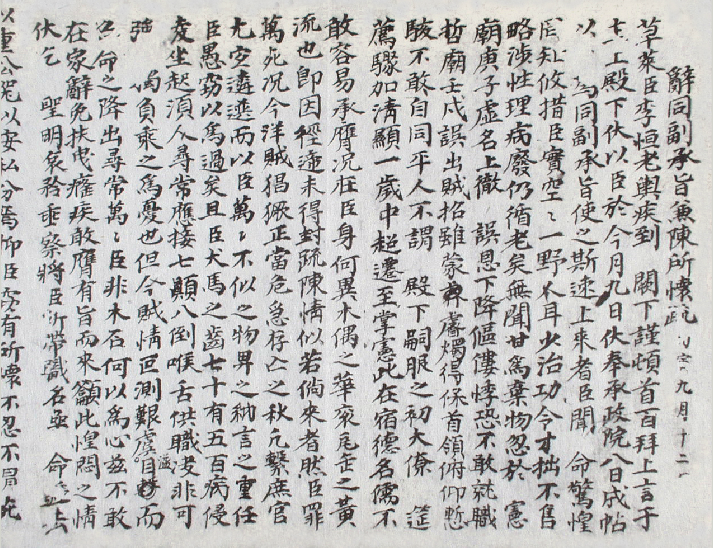 辭同副承旨兼陳所懷疏 九月十二
草萊臣李恒老輿疾到 闕下謹頓首百拜上言于
主上殿下伏以臣於今月九日伏奉承政院八日成帖
以 爲同副承旨使之斯速上來者臣聞 命驚惶
罔知攸措臣實空空一野人耳少治功令才拙不售
略涉性理病廢仍循老矣無聞甘爲棄物忽於 憲
廟庚子虛名上徹 誤恩下降傴僂悸恐不敢就職
哲廟壬戌誤出賊招雖蒙 睿燭得保首領俯仰慙
駭不敢自同平人不謂 殿下嗣服之初大僚 筵
薦驟加淸顯一歲中超遷至掌憲此在宿德名儒不
敢容易承膺況在臣身何異木偶之華袞尾缶之黃
流也卽因經遞未得封疏陳情似若倘來者然臣罪
萬死況今洋賊猖獗正當危急存亡之秋凡繫庶官
尤宜遴選而以臣萬萬不似之物畀之納言之重任
臣愚竊以爲過矣且臣犬馬之齒七十有五百病侵
凌坐起須人尋常應接七顚八倒喉舌供職決非可
强 但負乘之爲憂也但今賊情叵測艱虞溢目而
召命之降出尋常萬萬臣非木石何以爲心玆不敢
在家辭免扶曳癃疾敢膺有旨而來籲此惶悶之情
伏乞 聖明哀矜垂察將臣所帶職名亟 命 上
以重公器以安私分焉抑臣竊有所懷不忍不冒死